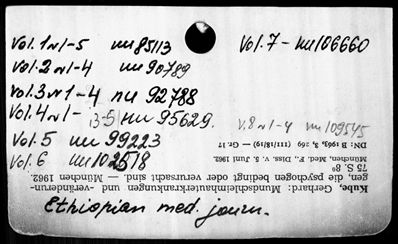 Vol. 1 N 1-5 nu 85113
Vol. 7 - nu 106660
Vol. 2 N 1-4 nu 90789
Vol. 3 N 1-4 nu 92788
Vol. 4 N 1-3-5 nu 95629.
V. 8 N 1-4 nu 109545
Vol. 5 nu 99223
Vol. 6 nu 102518
Ethiopian med. journ.
Kube, Gerhard: Mundschleimhauterkrankungen und -veränderun-
gen, die psychogen bedingt oder verursacht sind. — München 1962.
75 S. 8°
München, Med. F., Diss. v. 2. Juni 1962.
DN: B 1963, 3, 269 (III/18/19) — Gr. — 17